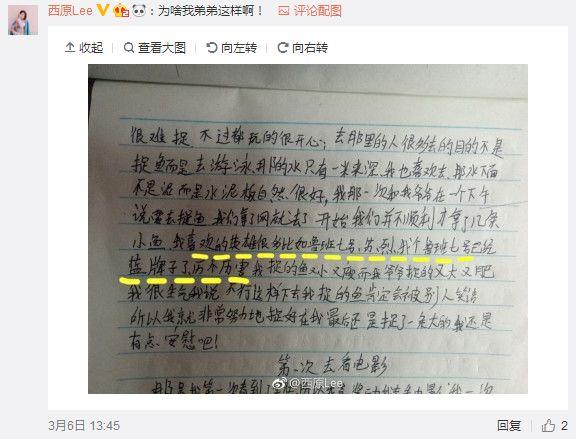 西原Lee：为啥我弟弟这样啊！ 评论配图
收起 查看大图 向左转 向右转
很难捉 不过都玩的很开心；去那里的人很多去的目的不是
捉鱼而是去游泳那的水只有一米来深 我也喜欢去 那水下面
不是泥而是水泥板自然很好，我那一次和我爷爷在一个下午
说要去捉鱼 我们拿了网就去了 开始我们并不顺利才拿了几条
小鱼，我喜欢的英雄很多比如鲁班七号，苏烈，我个鲁班七号已经
蓝牌子了，厉不厉害 我捉的鱼又小又瘦而我爷爷捉的又大又肥
我很生气我说 不行这样下去我捉的鱼肯定会被别人笑话
所以我就非常努力地捉好在我最后还是捉了一条大的我还是
有点安慰吧！
第一次去看电影
@西原Lee
3月6日 13:45 回复 2